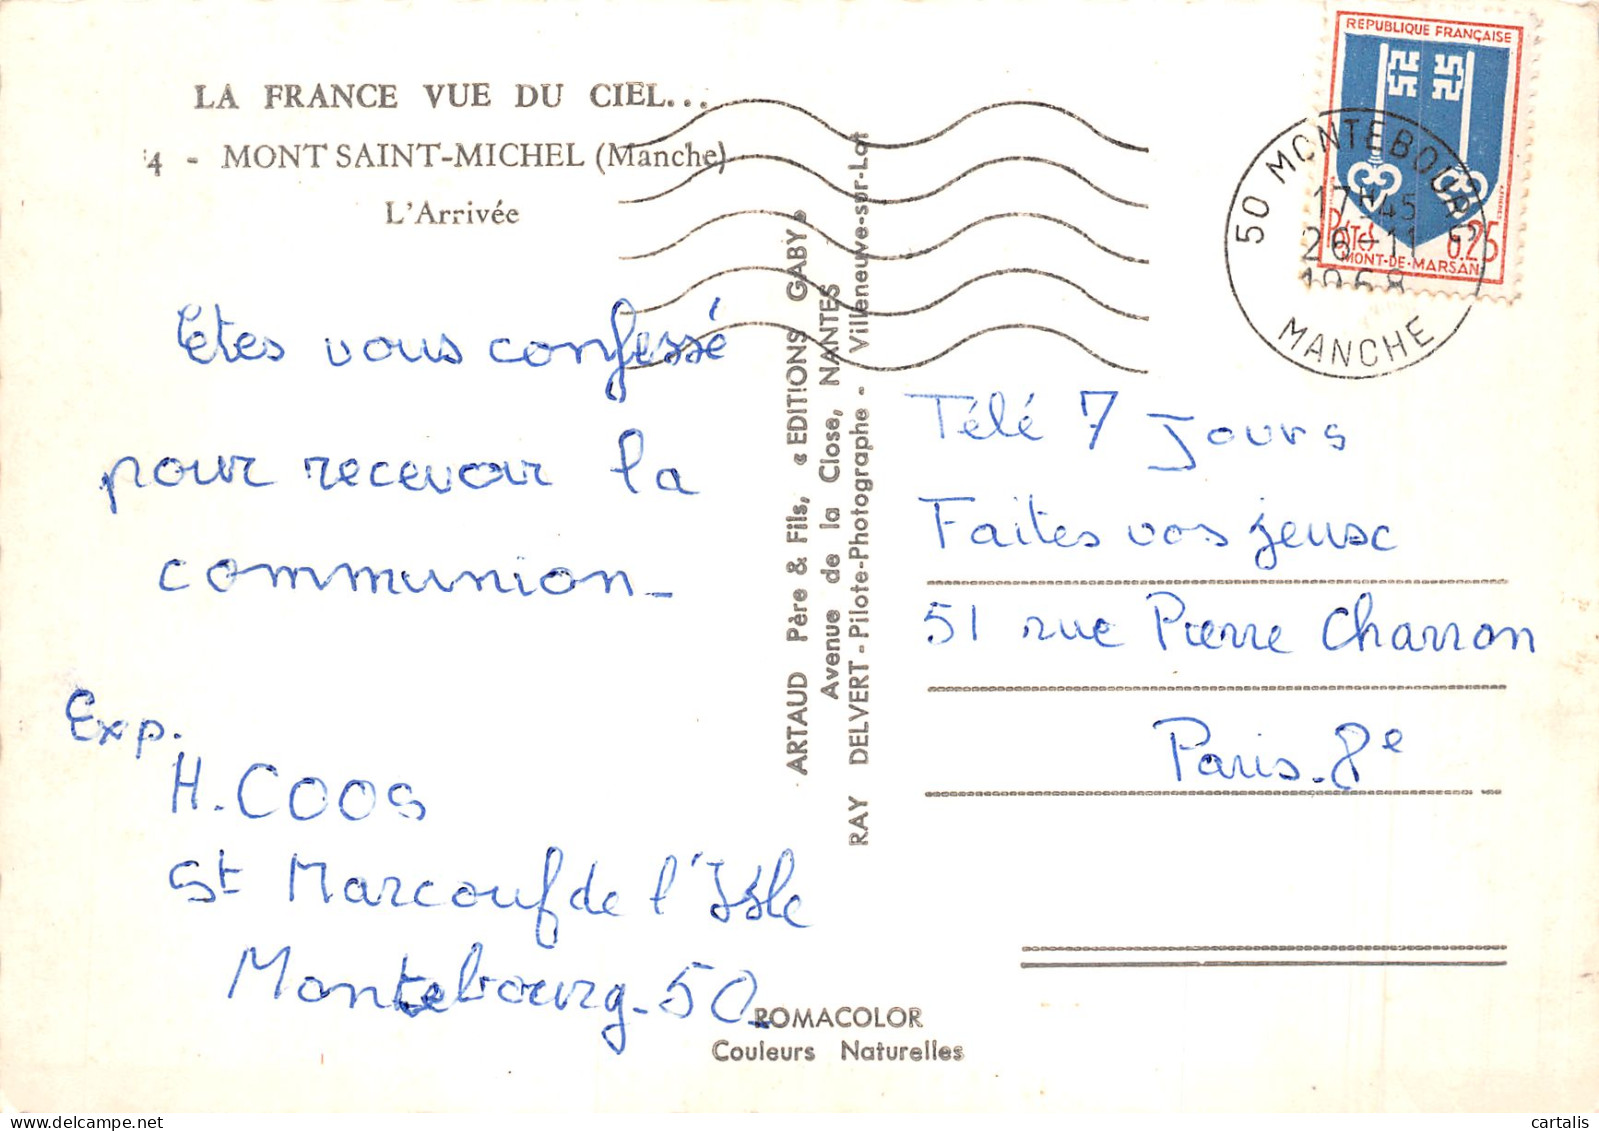 LA FRANCE VUE DU CIEL...
4 - MONT SAINT-MICHEL (Manche)
L'Arrivée
Etes vous confessé
pour recevoir la
communion_
Exp.
H. COOS
St Marcouf de l'Isle
Montebourg_50_
ARTAUD Père & Fils, « EDITIONS GABY »
Avenue de la Close, NANTES
RAY DELVERT - Pilote-Photographe - Villeneuve-sur-Lot
ROMACOLOR
Couleurs Naturelles
REPUBLIQUE FRANÇAISE
POSTES 0.25
MONT-DE-MARSAN
50 MONTEBOURG
17H45
26-11
1968
MANCHE
Télé 7 Jours
Faites vos jeux
51 rue Pierre Charron
Paris. 8e
cartalis
www.delcampe.net